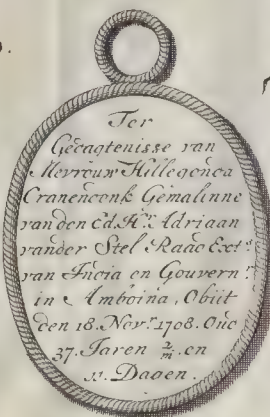 Ter
Gedagtenisse van
Mevrouw Hillegonda
Cranendonk Gemalinne
van den Ed. Hr. Adriaan
vander Stel Raad Ext.
van India en Gouvern.r
in Amboina, Obiit
den 18. Nov.r 1708. Oud
37. Jaren 2/m. en
11. Dagen.